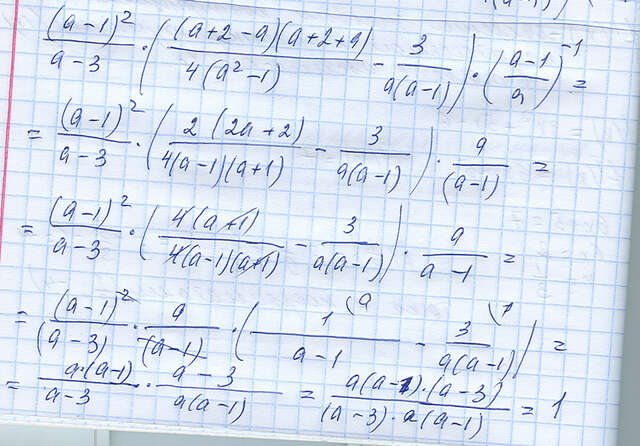 (a-1)²/(a-3) · ((a+2-a)(a+2+a)/(4(a²-1)) - 3/(a(a-1))) · ((a-1)/a)⁻¹ =
= (a-1)²/(a-3) · (2(2a+2)/(4(a-1)(a+1)) - 3/(a(a-1))) · a/(a-1) =
= (a-1)²/(a-3) · (4(a+1)/(4(a-1)(a+1)) - 3/(a(a-1))) · a/(a-1) =
= (a-1)²/(a-3) · a/(a-1) · (1(a/(a-1) - 3(1/(a(a-1))) =
= a·(a-1)/(a-3) · (a-3)/(a(a-1)) = a(a-1)·(a-3)/((a-3)·a(a-1)) = 1